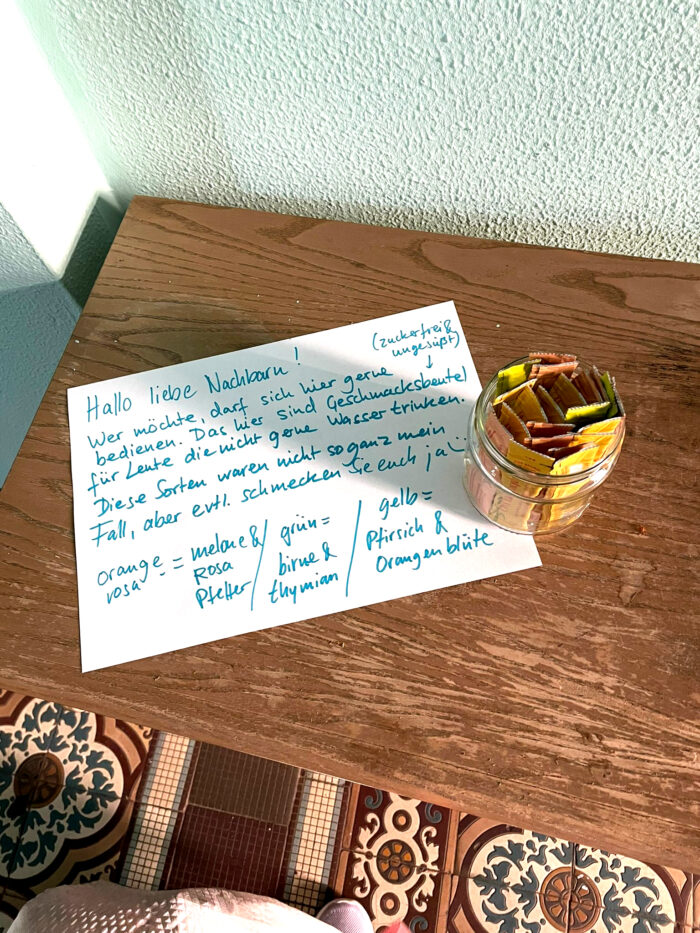 Hallo liebe Nachbarn!
(zuckerfrei &
ungesüßt)
Wer möchte, darf sich hier gerne
bedienen. Das hier sind Geschmacksbeutel
für Leute die nicht gerne Wasser trinken.
Diese Sorten waren nicht so ganz mein
Fall, aber evtl. schmecken sie euch ja
orange
rosa = melone &
Rosa
Pfeffer / grün =
birne &
thymian / gelb =
Pfirsich &
Orangenblüte